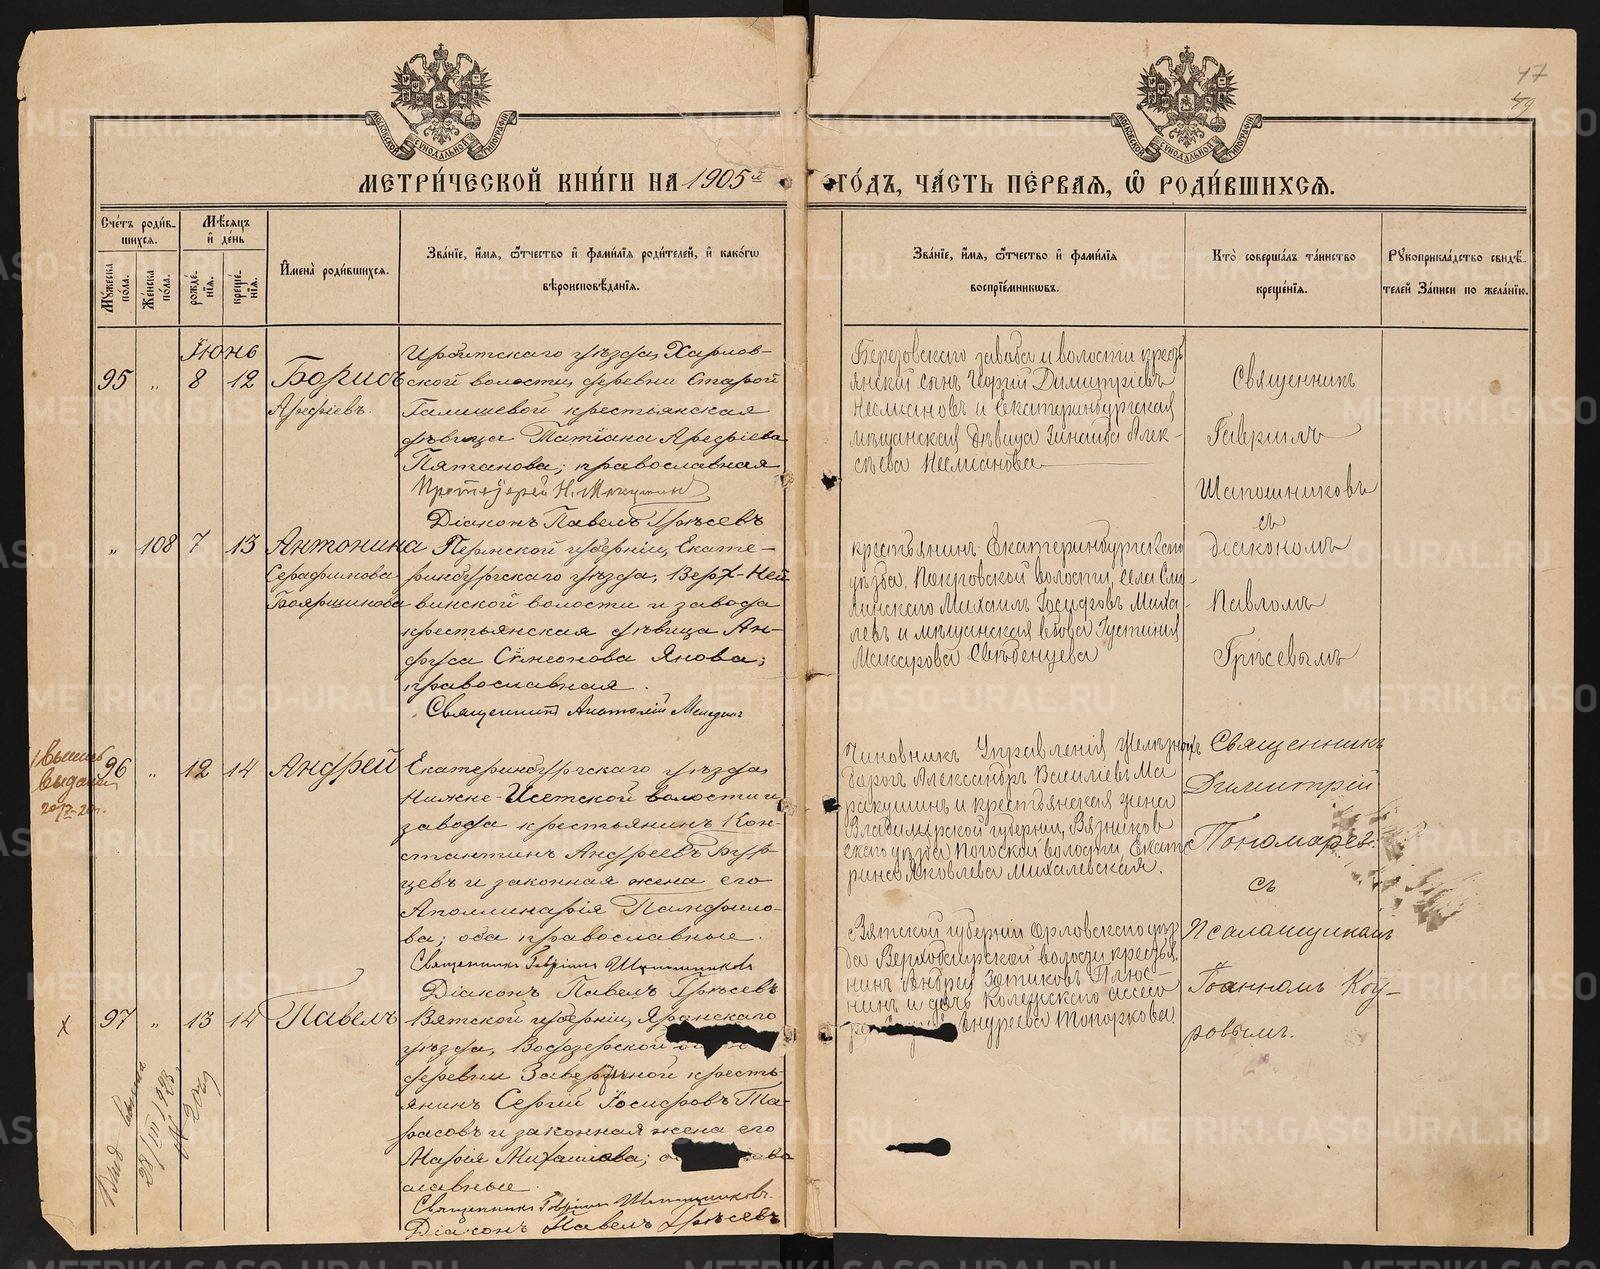 47
МЕТРИ́ЧЕСКОЙ КНИ́ГИ НА 1905й
ГО́ДЪ, ЧА́СТЬ ПЕ́РВАЯ, Ѿ РОДИ́ВШИХСЯ.
Сче́тъ роди́в-
шихся.
Мѣ́сяцъ
и де́нь
Мꙋ́жеска по́ла.
Же́нска по́ла.
рожде́нїя.
креще́нїя.
Имена̀ роди́вшихся.
Зва́нїе, и́мя, ѻ́тчество и фами́лїя роди́телей, и како́гѡ
вѣроисповѣ́данїя.
Зва́нїе, и́мя, ѻ́тчество и фами́лїя
воспрїе́мникѡвъ.
Кто̀ соверша́лъ та́инство
креще́нїя.
Рꙋкоприкла́дство свидѣ́-
телей за́писи по жела́нїю.
Іюнь
95 " 8 12 Борисъ
Арефіевъ
Ирбитскаго уѣзда, Харлов-
ской волости, деревни Старой
Галишевой крестьянская
дѣвица Татіана Арефіева
Пятанова; православная
Протоіерей Н.
Діаконъ Павелъ Грѣсевъ
Березовскаго завода и волости кресть
янский сынъ Георгій Димитріевъ
и Екатеринбургская
мѣщанская дѣвица Зинаида Алек-
сѣева
Священникъ
Гавріилъ
Шапошниковъ
съ
діакономъ
Павломъ
Грѣсевымъ
" 108 7 13 Антонина
Серафимова
Боярщинова
Пермской губерніи, Екате-
ринбургскаго уѣзда, Верх-Ней
винской волости и завода
крестьянская дѣвица Ан-
фуса Симеонова Янова;
православная.
Священникъ Анатолій
крестьянинъ Екатеринбургскаго
уѣзда, Покровской волости, села
Михаилъ Іосифовъ Миха-
левъ и мѣщанская вдова Іустинія
Макарова
Выпись
выдана
96 " 12 14 Андрей
Екатеринбургскаго уѣзда,
Нижне-Исетской волости и
завода крестьянинъ Кон-
стантинъ Андреевъ Бур-
цевъ и законная жена его
Аполлинарія Памфило-
ва; оба православные.
Священникъ Гавріилъ Шапошниковъ
Діаконъ Павелъ Грѣсевъ
Чиновникъ Управленія желѣзной
дороги Александръ Василіевъ Ма
ракушинъ и крестьянская жена
Владимірской губерніи, Вязников
скаго уѣзда волости, Екате
рина Яковлева Михалевская.
Священникъ
Димитрій
Пономаревъ
съ
Псаломщикомъ
Іоанномъ Коу-
ровымъ.
х 97 " 13 14 Павелъ
Вятской губерніи, Яранскаго
уѣзда, Водозерской
деревни крестья-
янинъ Сергій Іосифовъ Та-
расовъ и законная жена его
Марія Михаилова;
славные.
Священникъ Гавріилъ Шапошниковъ
Діаконъ Павелъ Грѣсевъ
Вятской губерніи Орловскаго уѣз
да волости крестья
нинъ Андрей Зотиковъ Плюс-
нинъ и дочь Коллежскаго ассесо
Андреева Топоркова.
METRIKI.GASO-URAL.RU